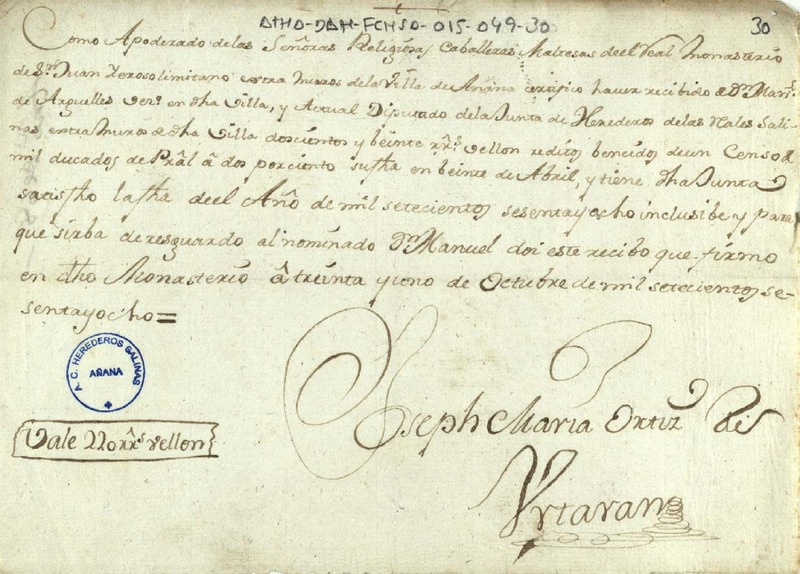 ATHA-DAH-FCHSA-015-049-30
30
Como Apoderado delas Señoras Religiosas Caballeras Maltesas deel Real Monasterio
de Sn. Juan Jerosolimitano extra muros dela Villa de Añana certifico haver recibido de Dn. Manl.
de Arguelles vezo. en dha Villa, y Actual Diputado dela Junta de Herederos delas Reales Sali-
nas, entra Muros de dha Villa doscientos y beinte rrs. vellon reditos bencidos de un Censo de
mil ducados de Pral â dos por ciento su fha en beinte de Abril, y tiene dha Junta
satisfho la fha deel Año de mil setecientos sesenta yocho inclusibe y para
que sirba de resguardo al nominado Dn. Manuel doi este recibo que firmo
en dho Monasterio â treinta y uno de Octubre de mil setecientos se-
senta yocho=
A.C. HEREDEROS SALINAS
AÑANA
Vale 220 rrs vellon
Joseph Maria Ortiz de
Urtaran